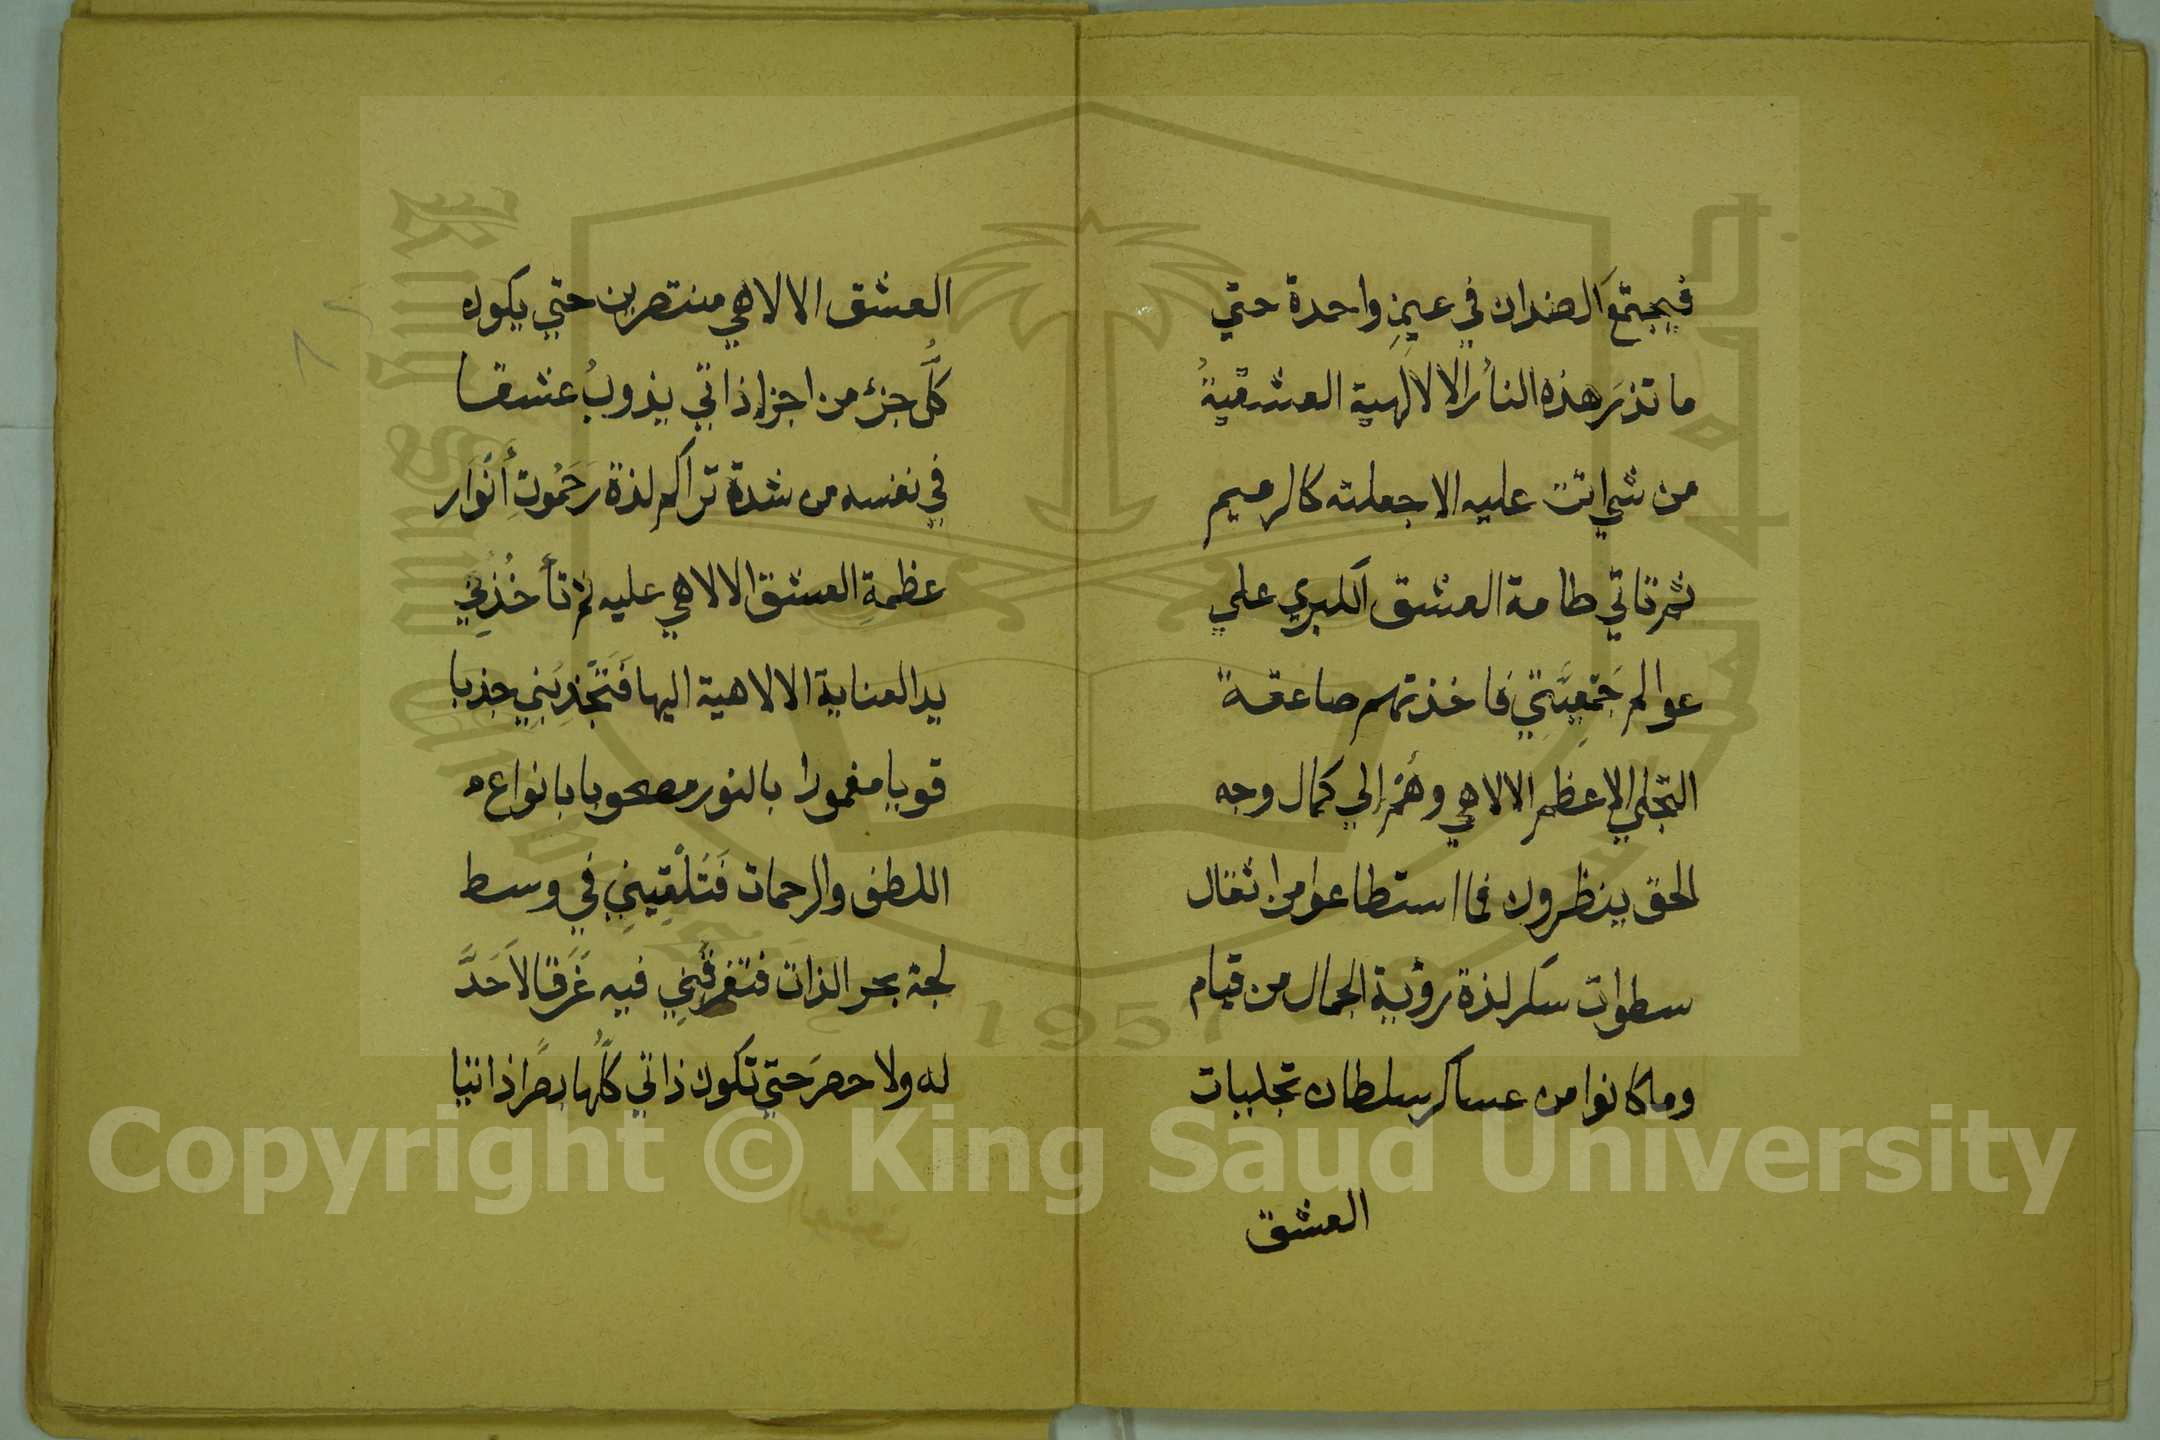 فيجتمعَ الضدان في عينٍ واحدة حتي
ما تذرَ هذه النأر الالالهية العشقيةُ
من شي اتت عليه الا جعلته كالرميم
ثم تاتي طامة العشق الكبري علي
عوالم جَمْعِيَّتِي فاخذتهم صاعقة
التجلي الاعظم الالاهي وهُمْ إلي كمال وجه
الحق ينظرون فما استطاعوا من اثقال
سطوات سكر لذة رؤية الجمال من قيام
وما كانوا من عساكر سلطان تجليات
العشق
العشق الالاهي منتصرين حتي يكون
كلُّ جزء من اجزإ ذاتي يذوبُ عشقا
في نفسه من شدة تراكم لذة رَحَمُوتِ أَنْوَار
عظمةِ العشق الالاهي عليه ثم تأخُذُنِي
يد العناية الالاهية اليها فَتَجْذِبُنِي جذبا
قويا مغمورا بالنور مصحوبا بانواع ه
اللطف والرحمات فَتُلْقِينِي في وسط
لجة بحر الذات فتغرقَنِي فيه غَرَقًا لاَ حَدَّ
له ولا حصرَ حتي تكون ذاتي كلُّها بصرًا ذاتيا
٨٢
Copyright © King Saud University
King Saud University
1957